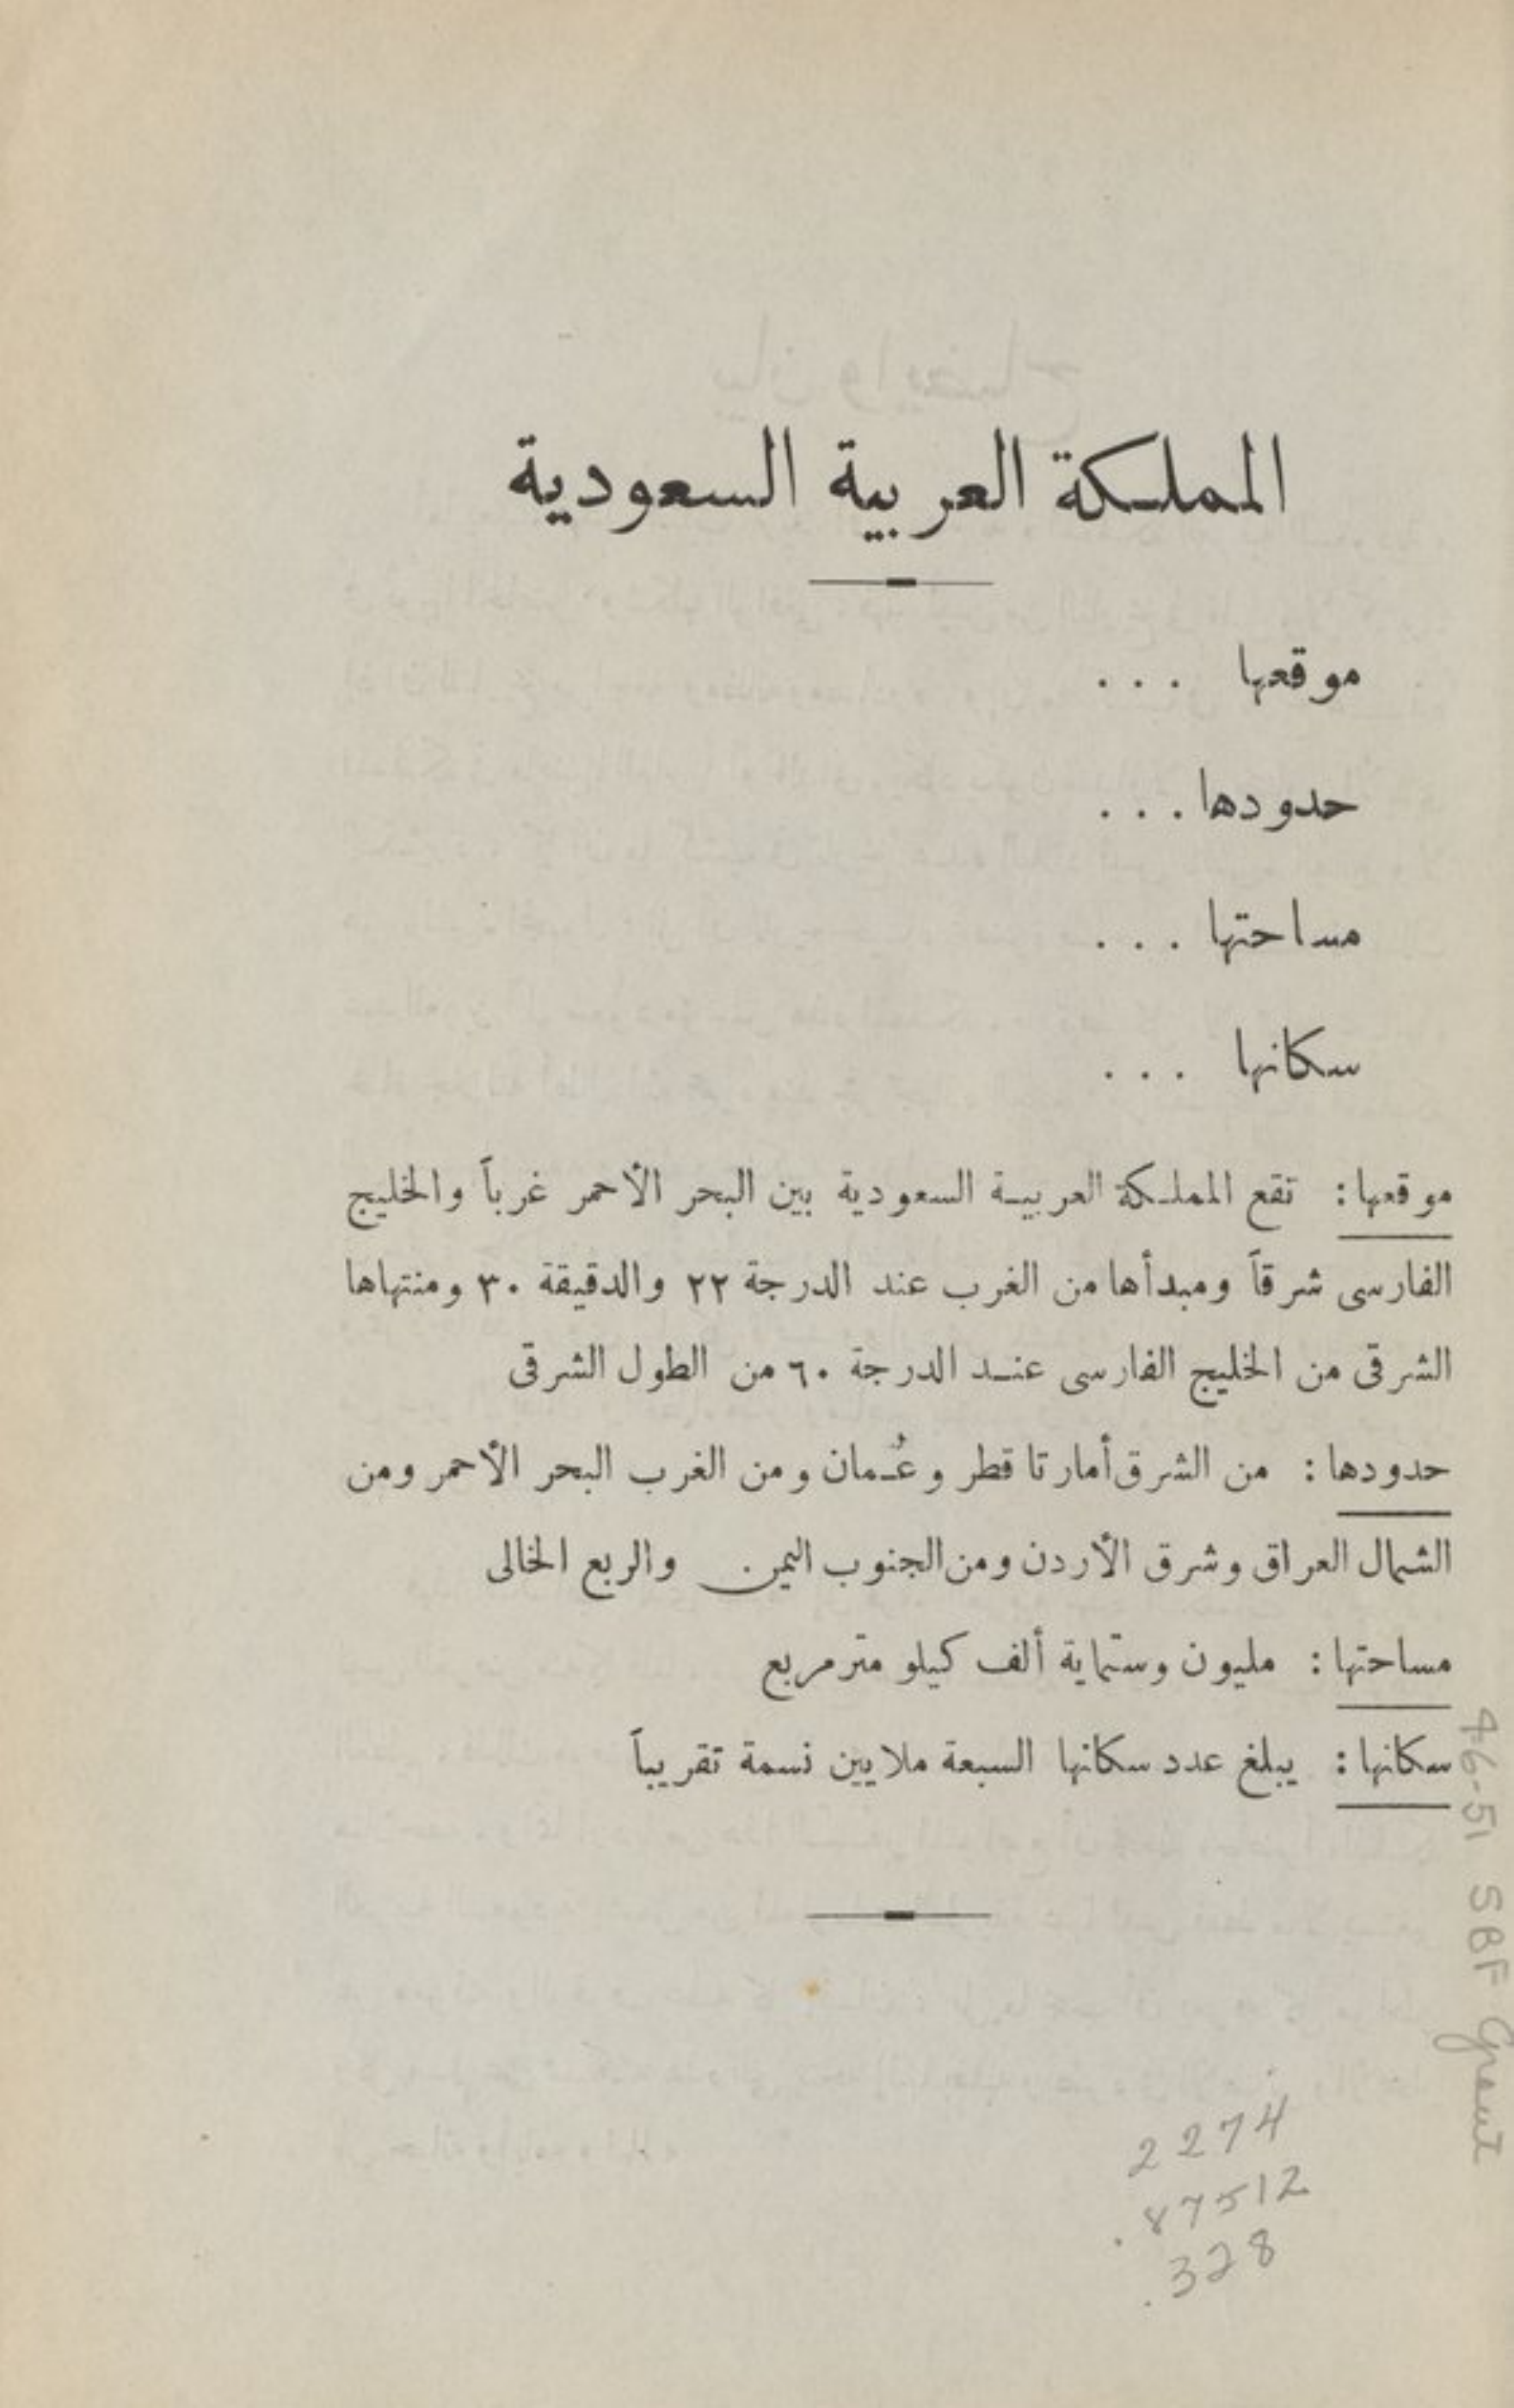 المملكة العربية السعودية
موقعها . . .
حدودها . . .
مساحتها . . .
سكانها . . .
موقعها : تقع المملكة العربية السعودية بين البحر الأحمر غرباً والخليج
الفارسى شرقاً ومبدأها من الغرب عند الدرجة ٢٢ والدقيقة ٣٠ ومنتهاها
الشرقى من الخليج الفارسى عند الدرجة ٦٠ من الطول الشرقى
حدودها : من الشرق أمارتا قطر وعُمان ومن الغرب البحر الأحمر ومن
الشمال العراق وشرق الأردن ومن الجنوب اليمن والربع الخالى
مساحتها : مليون وستماية ألف كيلو متر مربع
سكانها : يبلغ عدد سكانها السبعة ملايين نسمة تقريباً
46-51 SBF Grant
2274
.87512
.328